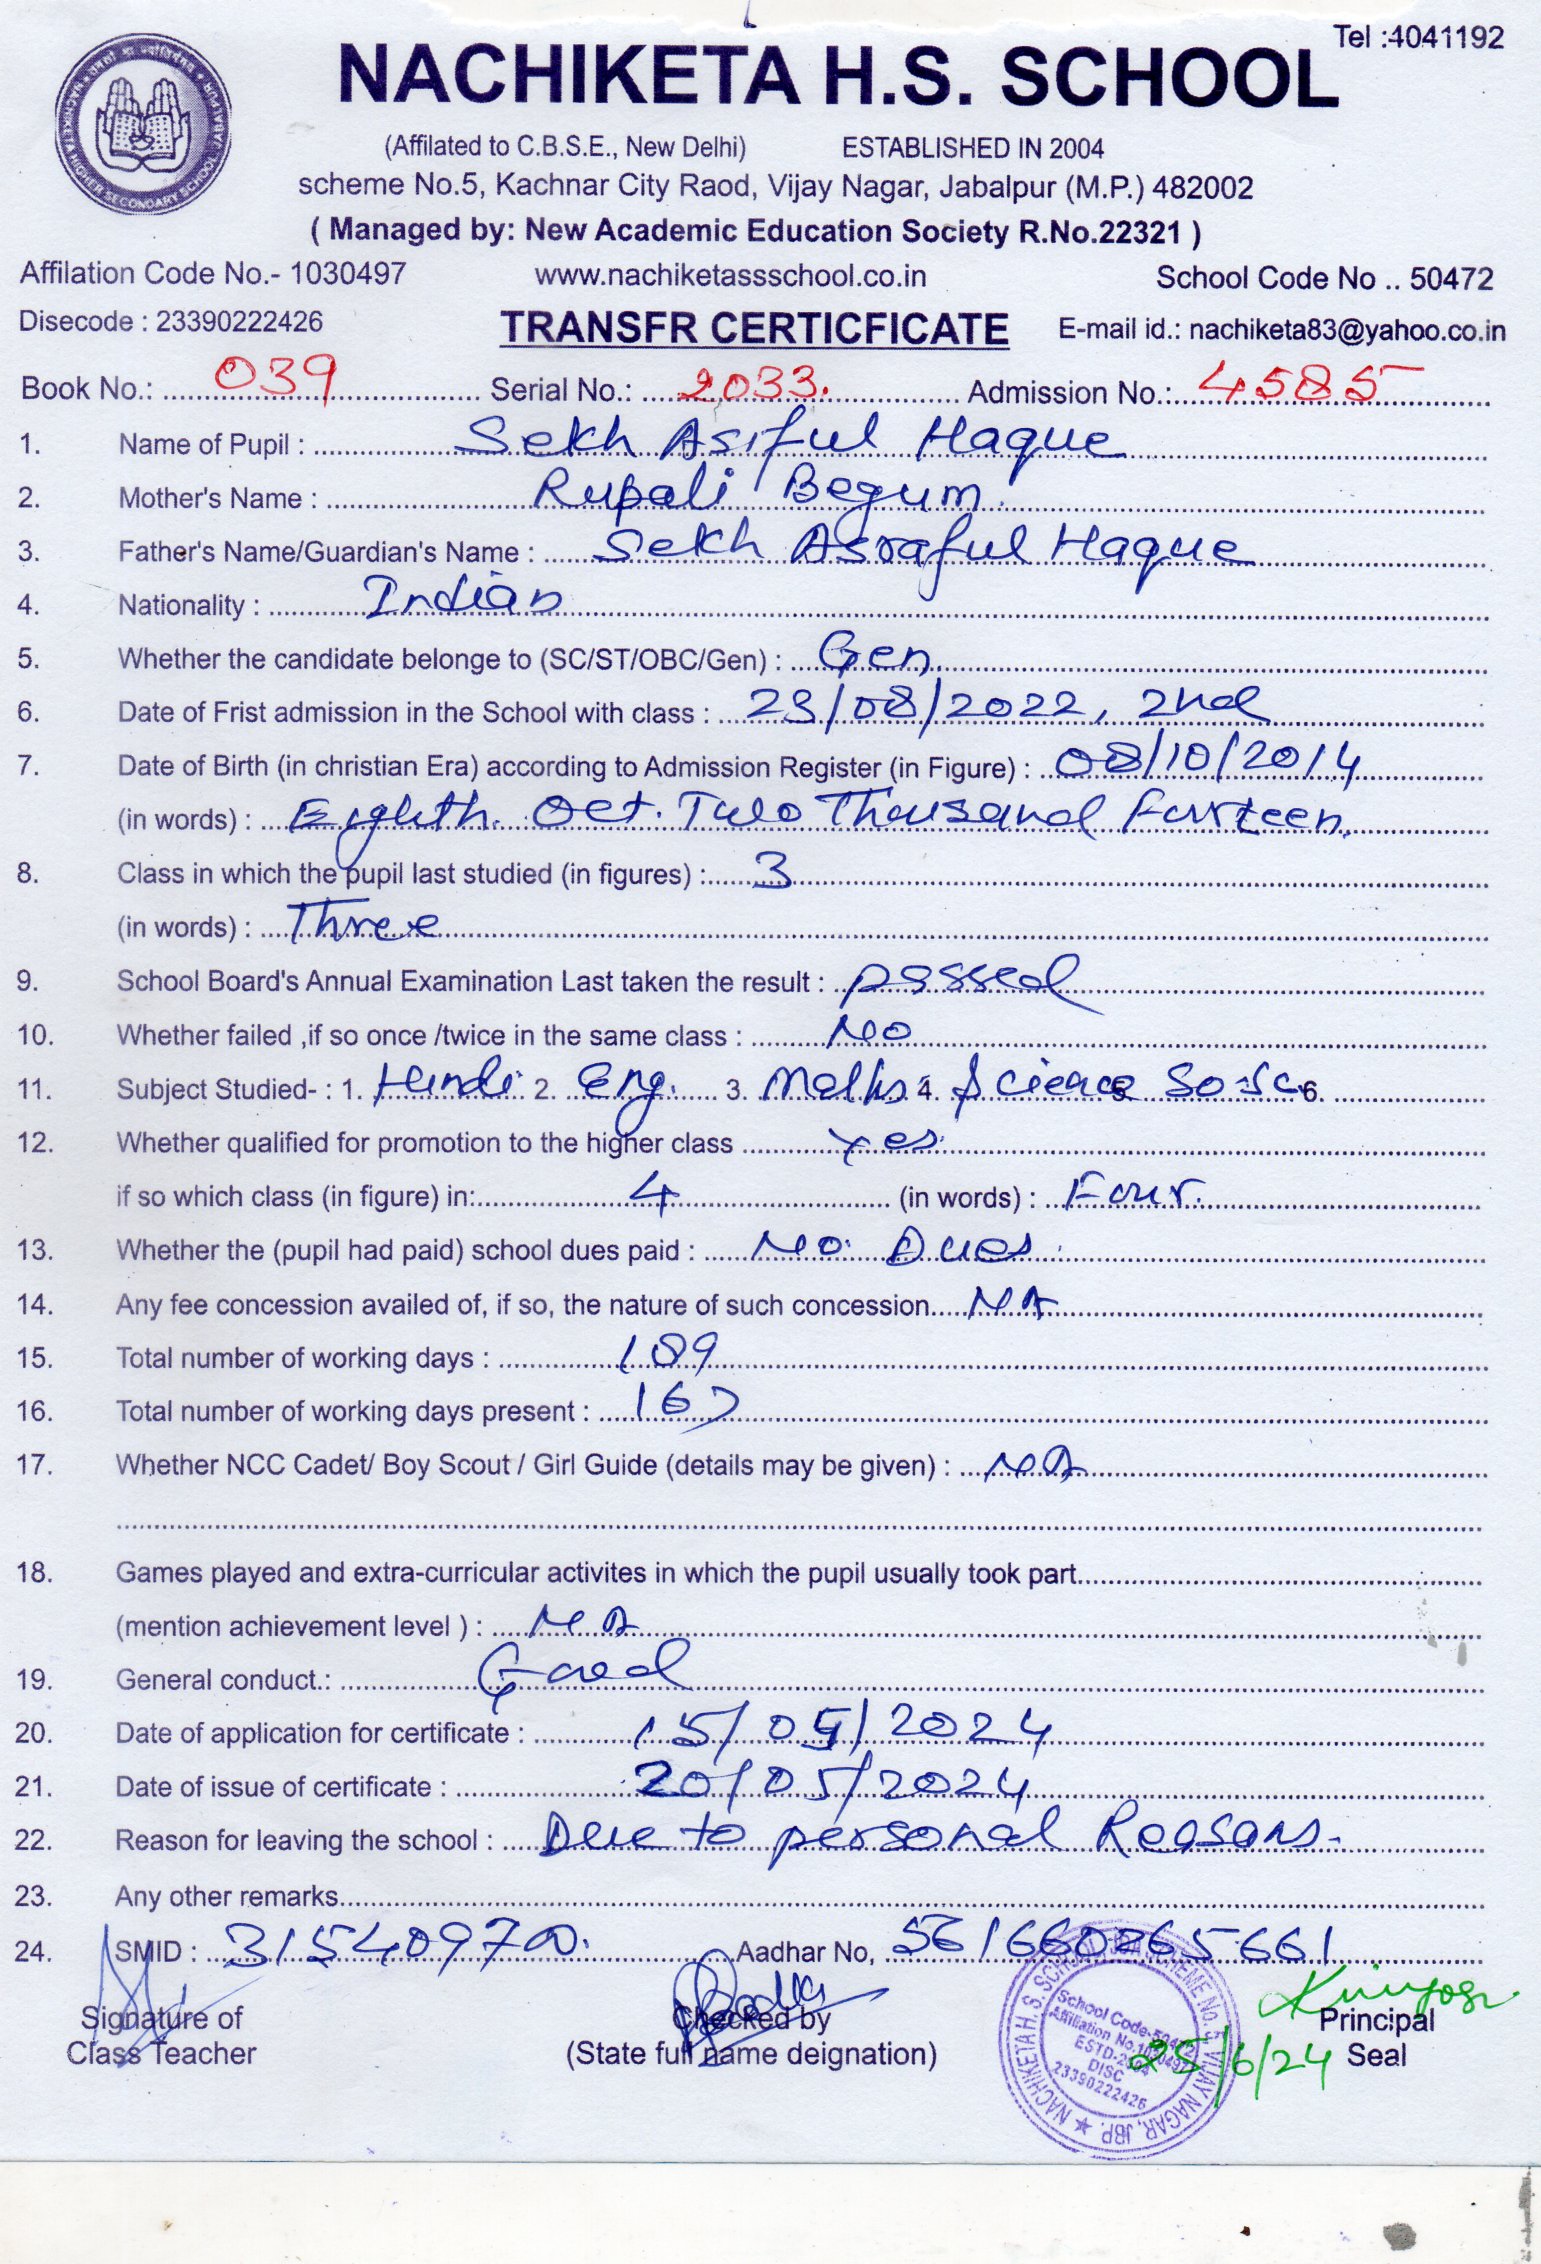 Tel :4041192
NACHIKETA H.S. SCHOOL
(Affilated to C.B.S.E., New Delhi) ESTABLISHED IN 2004
scheme No.5, Kachnar City Raod, Vijay Nagar, Jabalpur (M.P.) 482002
( Managed by: New Academic Education Society R.No.22321 )
Affilation Code No.- 1030497 www.nachiketassschool.co.in School Code No .. 50472
Disecode : 23390222426 TRANSFR CERTICFICATE E-mail id.: nachiketa83@yahoo.co.in
Book No.: 039 Serial No.: 2033. Admission No.: 4585
1. Name of Pupil : Sekh Asiful Haque
2. Mother's Name : Rupali Begum.
3. Father's Name/Guardian's Name : Sekh Asraful Haque
4. Nationality : Indian
5. Whether the candidate belonge to (SC/ST/OBC/Gen) : Gen.
6. Date of Frist admission in the School with class : 23/08/2022, 2nd
7. Date of Birth (in christian Era) according to Admission Register (in Figure) : 08/10/2014
(in words) : Eighth. Oct. Two Thousand Fourteen.
8. Class in which the pupil last studied (in figures) : 3
(in words) : Three
9. School Board's Annual Examination Last taken the result : passed
10. Whether failed ,if so once /twice in the same class : No
11. Subject Studied- : 1. Hindi 2. Eng. 3. Maths 4. Science 5 So-Sc. 6.
12. Whether qualified for promotion to the higher class yes.
if so which class (in figure) in: 4 (in words) : Four.
13. Whether the (pupil had paid) school dues paid : No. Dues.
14. Any fee concession availed of, if so, the nature of such concession NA
15. Total number of working days : 189
16. Total number of working days present : 167
17. Whether NCC Cadet/ Boy Scout / Girl Guide (details may be given) : NA
18. Games played and extra-curricular activites in which the pupil usually took part
(mention achievement level ) : NA
19. General conduct.: Good
20. Date of application for certificate : 15/05/2024
21. Date of issue of certificate : 20/05/2024
22. Reason for leaving the school : Due to personal Reasons.
23. Any other remarks
24. SMID : 315409700. Aadhar No, 561660265661
Signature of Checked by Principal
Class Teacher (State full name deignation) 25/6/24 Seal
NACHIKETA H. S. SCHOOL, JDA SCHEME No. 5, VIJAY NAGAR, JBP.
School Code-50472
Affiliation No.1030497
ESTD-2004
DISC
23390222426